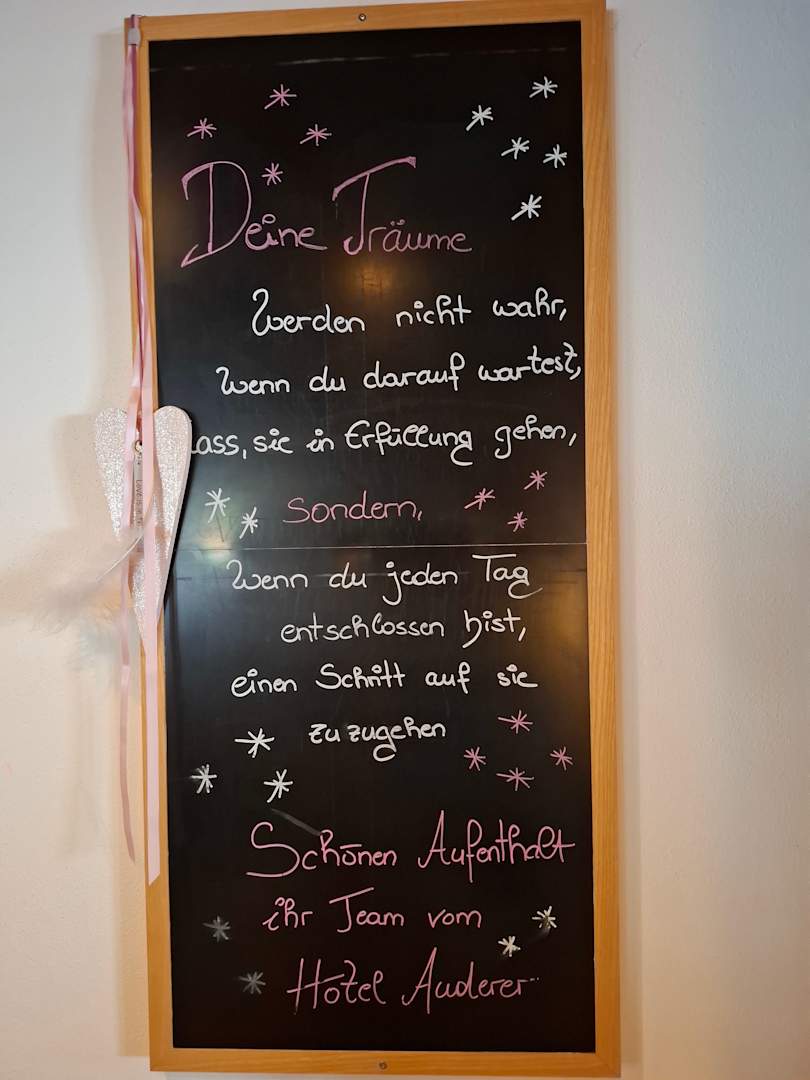 Deine Träume
Werden nicht wahr,
Wenn du darauf wartest,
dass, sie in Erfüllung gehen,
sondern,
Wenn du jeden Tag
entschlossen bist,
einen Schritt auf sie
zuzugehen
Schönen Aufenthalt
ihr Team vom
Hotel Auderer